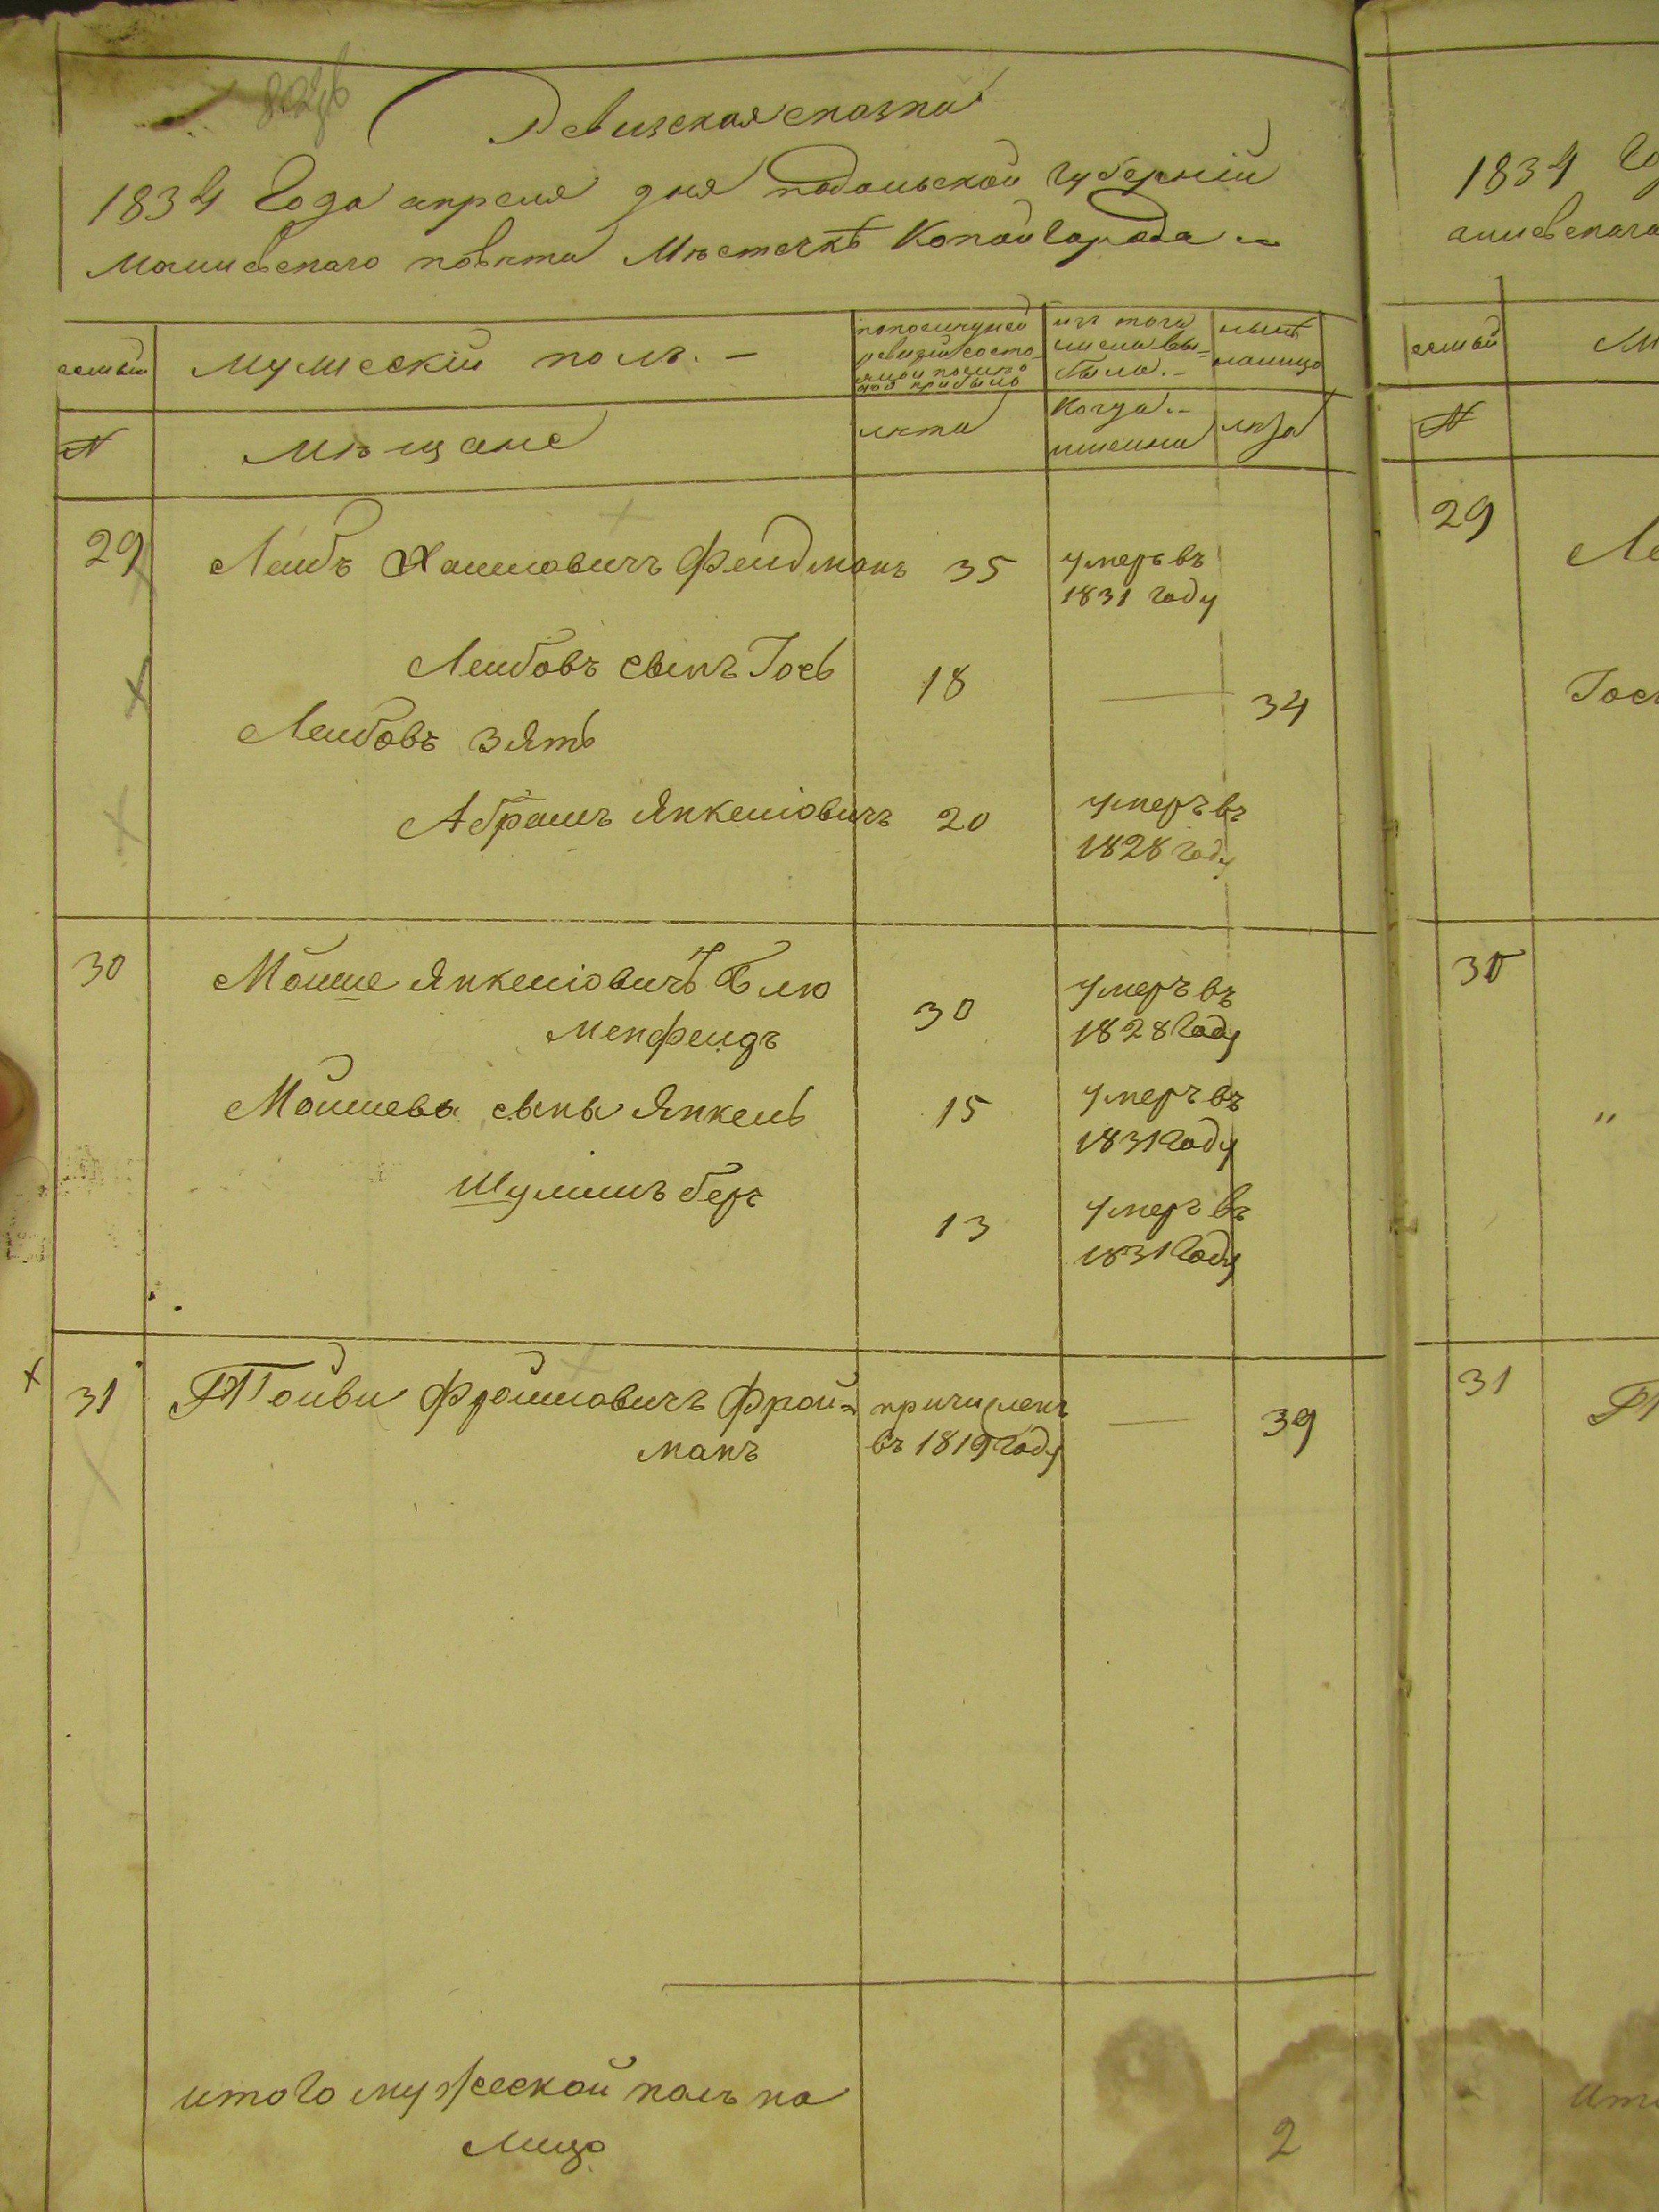 Ревизская сказка
1834 Года апреля дня подольской Губерніи
Могилевскаго повѣта Мѣстечкѣ Копайгорода
семьи
Мужескій полъ. —
по последней ревизіи состояло и после того прибыло
изъ того числа выбыло. —
нынѣ налицо
№
мѣщане
лѣта
Когда имянно
лѣта
29
Лейбъ Хаимовичъ Фельдманъ
35
умеръ въ
1831 году
Лейбовъ сынъ Іось
18
—
34
Лейбовъ зять
Абрамъ Янкелiовичъ
20
умеръ въ
1828 году
30
Мошше Янкелiовичъ Блю
менфельдъ
30
умеръ въ
1828 Году
Мошшевы сыны Янкель
15
умеръ въ
1831 Году
Шулимъ беръ
13
умеръ въ
1831 Году
31
Фройимовичъ Фрой-
манъ
причисленъ
въ 1819 году
—
39
итого мужеской полъ на
лицо
2
1834
29
30
"
31